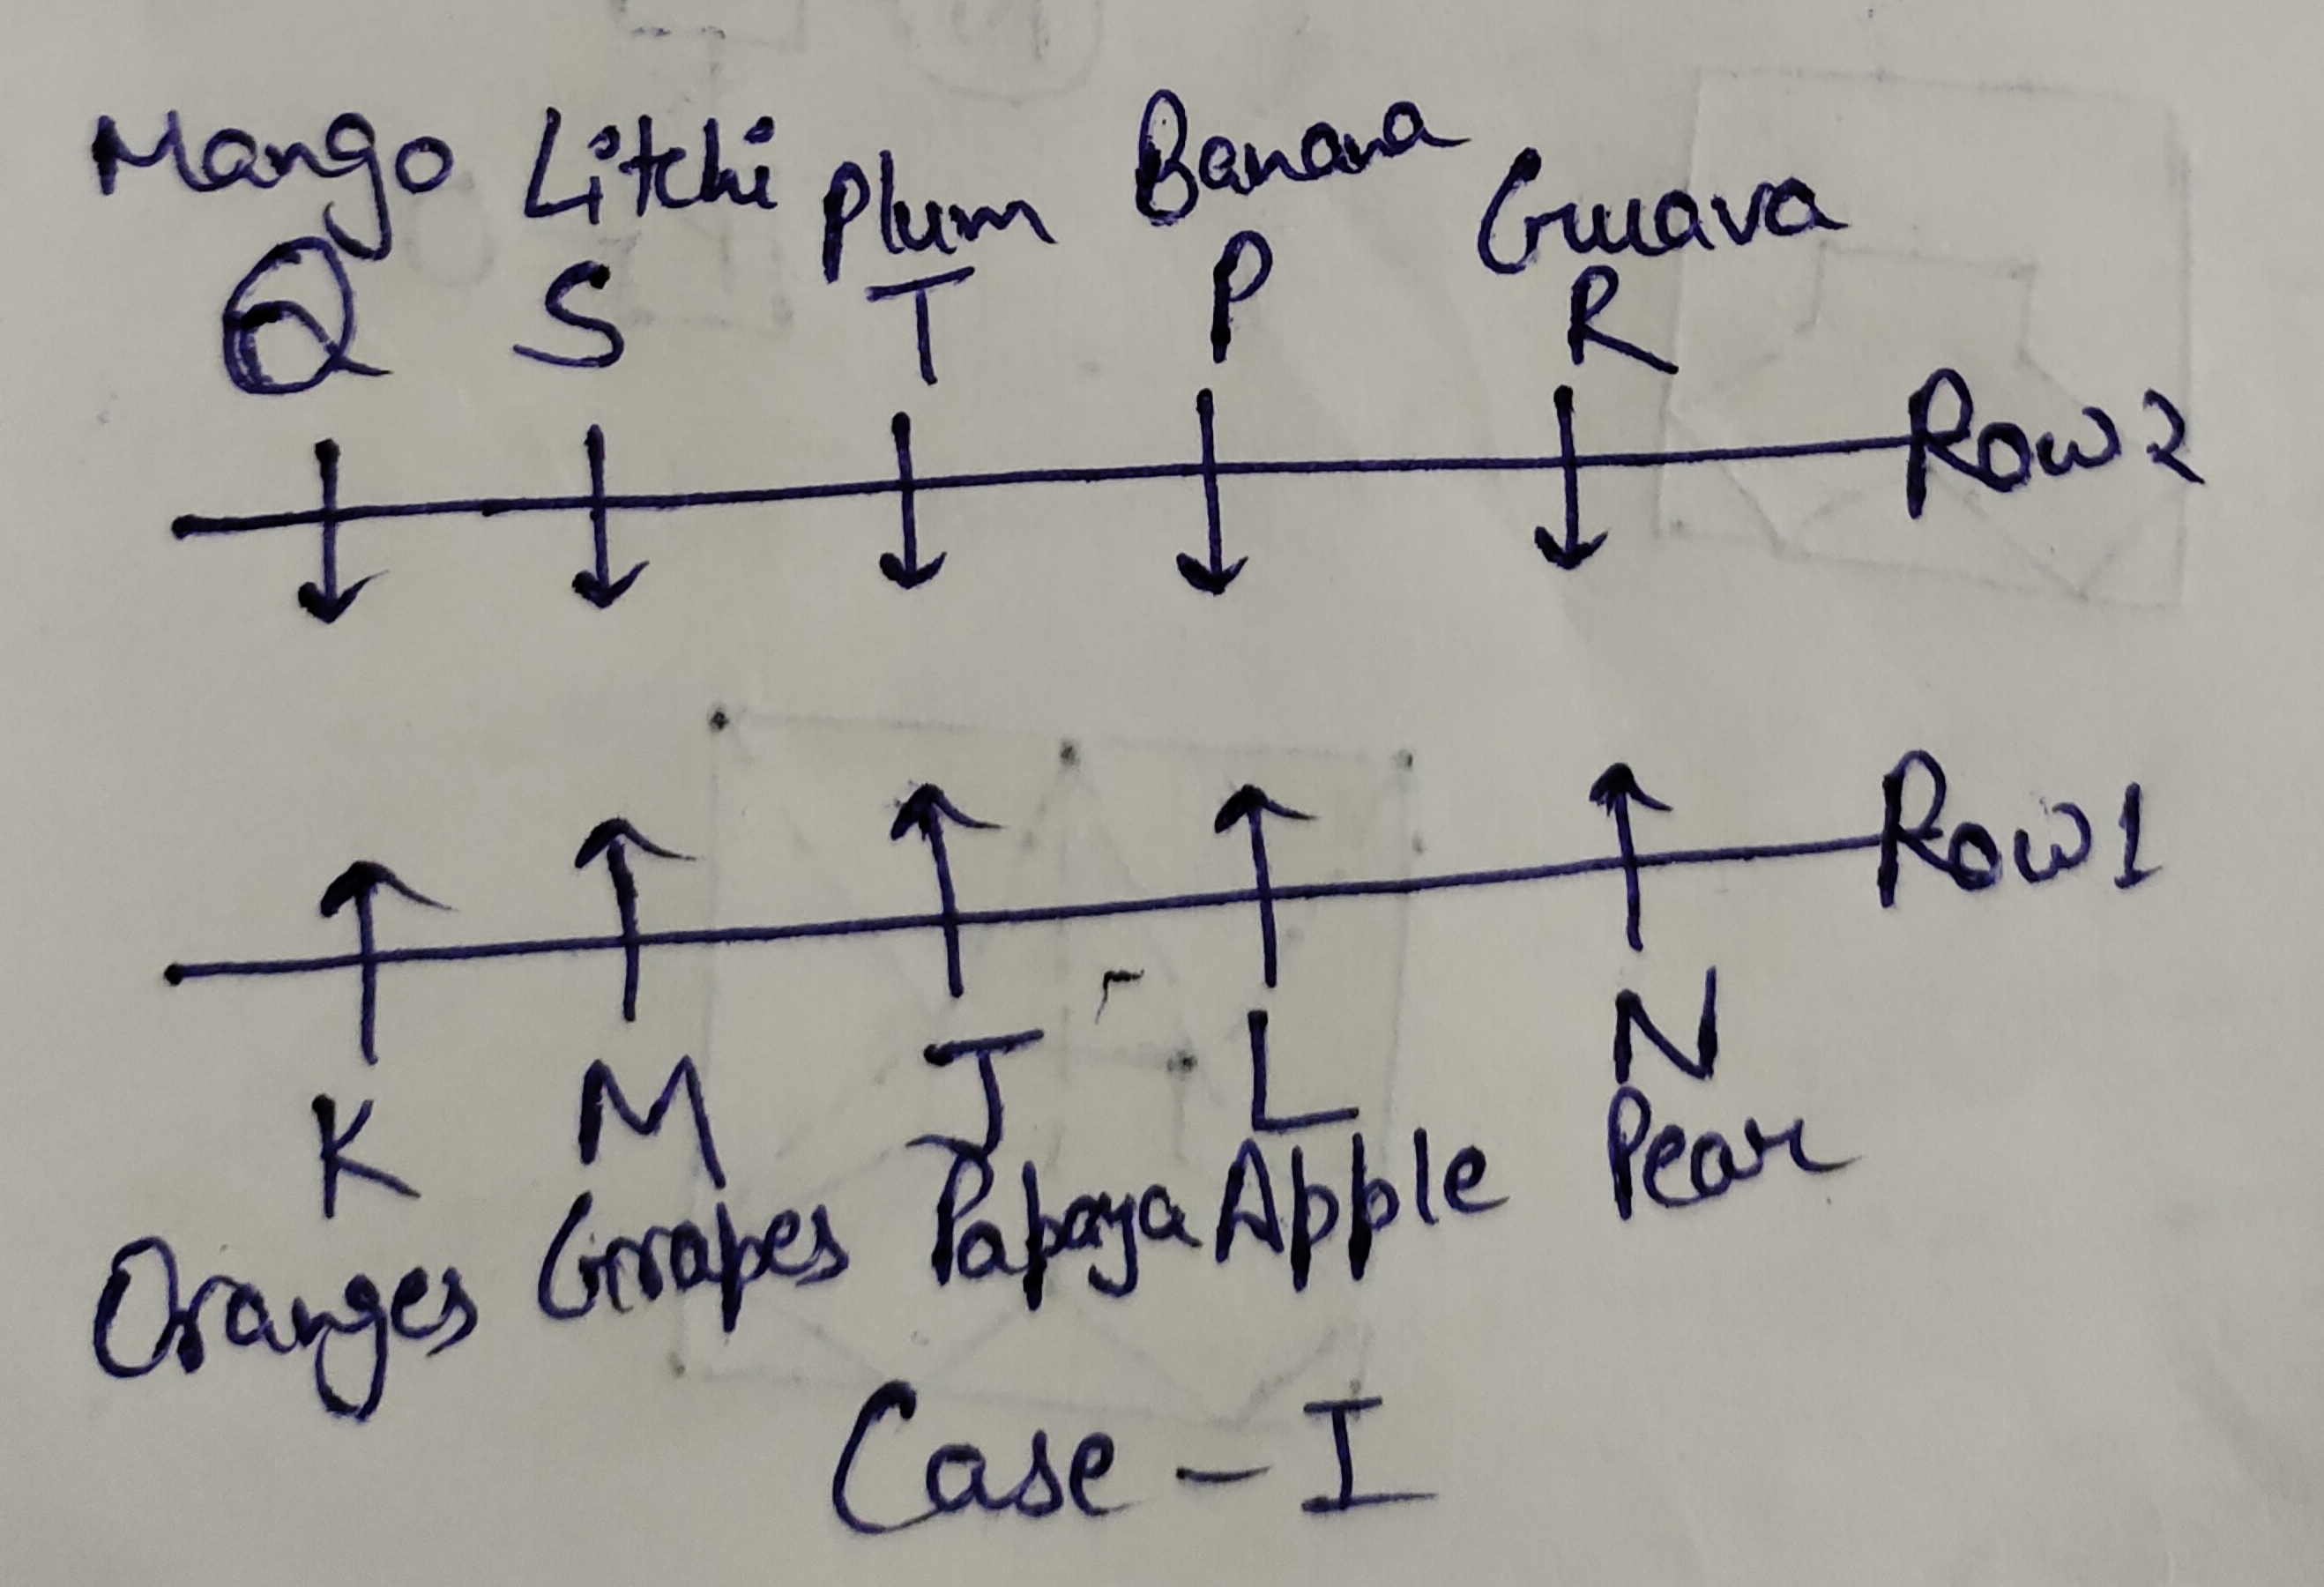 Mango Litchi Plum Banana Guuava
Q S T P R
Row 2
Row 1
K M J L N
Oranges Grapes Papaya Apple Pear
Case - I